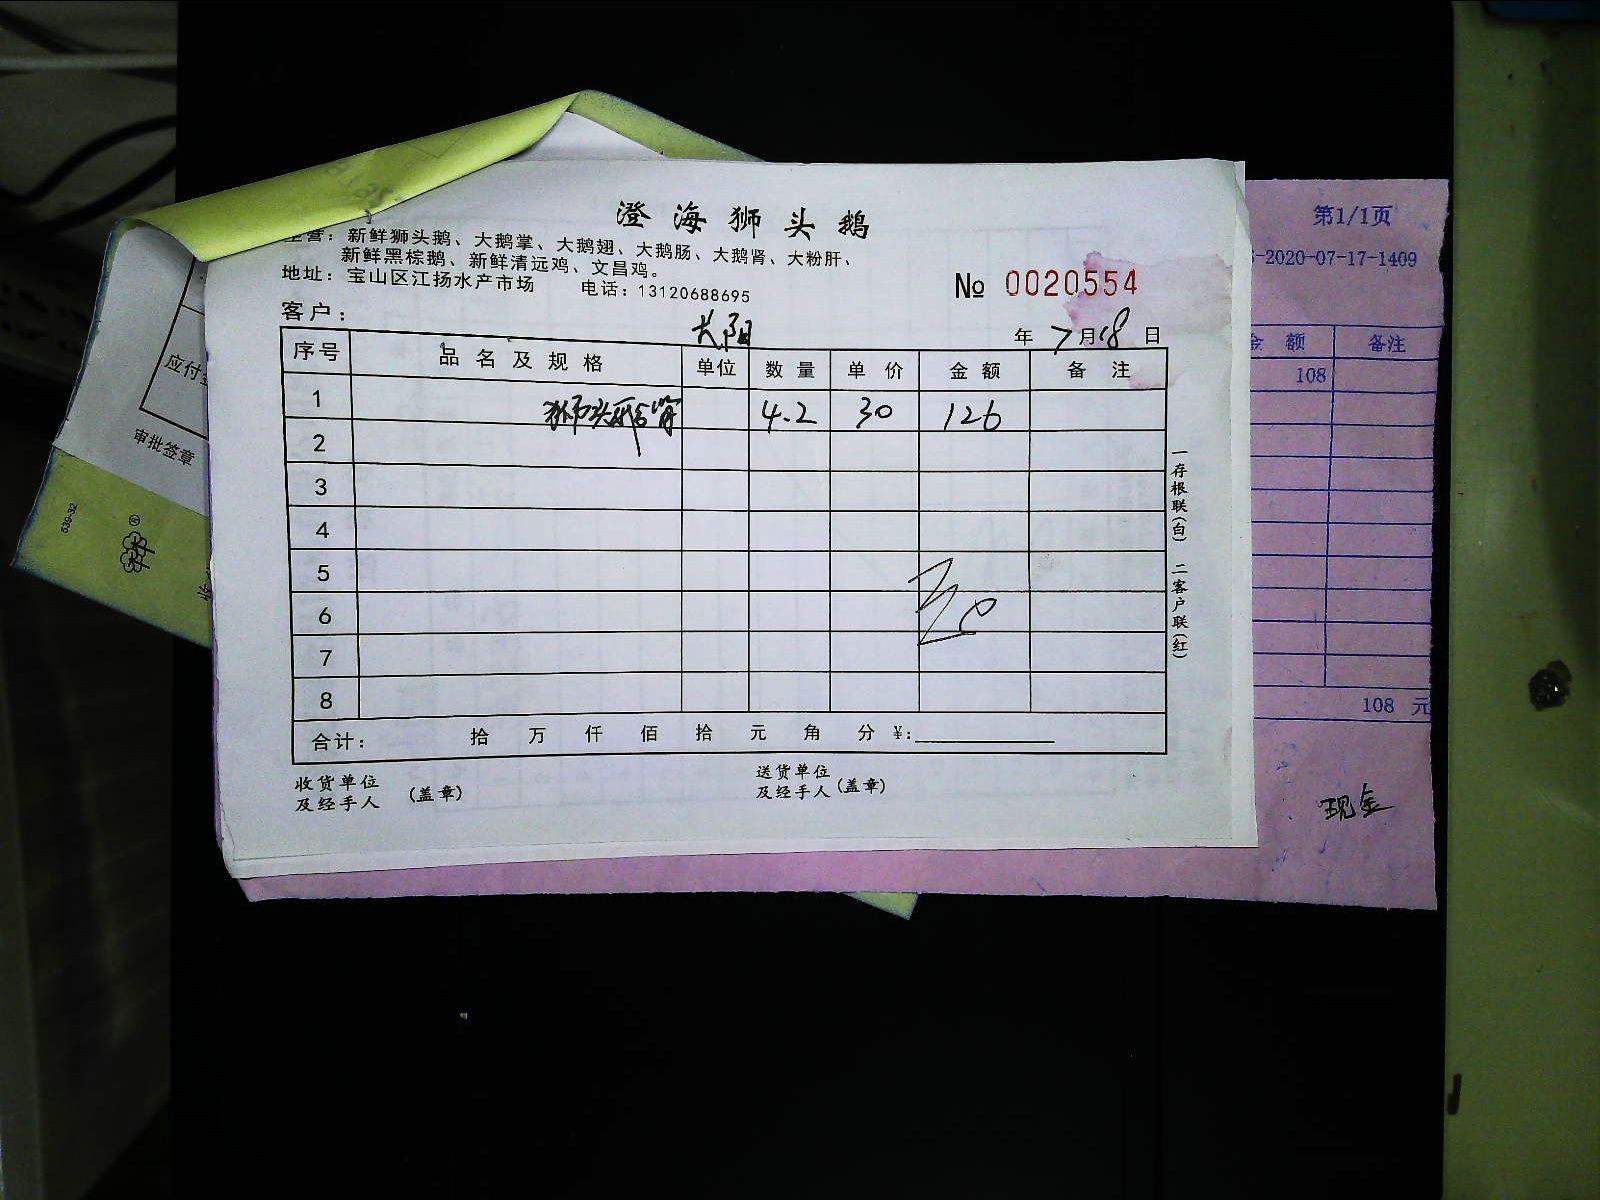 澄海狮头鹅
主营：新鲜狮头鹅、大鹅掌、大鹅翅、大鹅肠、大鹅肾、大粉肝、
新鲜黑棕鹅、新鲜清远鸡、文昌鸡。
地址：宝山区江扬水产市场 电话：13120688695
№ 0020554
客户：
大阳
年 7月18日
序号 品名及规格 单位 数量 单价 金额 备注
1 狮头鹅肾 4.2 30 126
2
3
4
5
6
7
8
合计： 拾 万 仟 佰 拾 元 角 分 ¥:
收货单位
及经手人 (盖章)
送货单位
及经手人 (盖章)
一存根联(白) 二客户联(红)
第1/1页
-2020-07-17-1409
金额 备注
108
108 元
现金
应付
审批签章
539-32